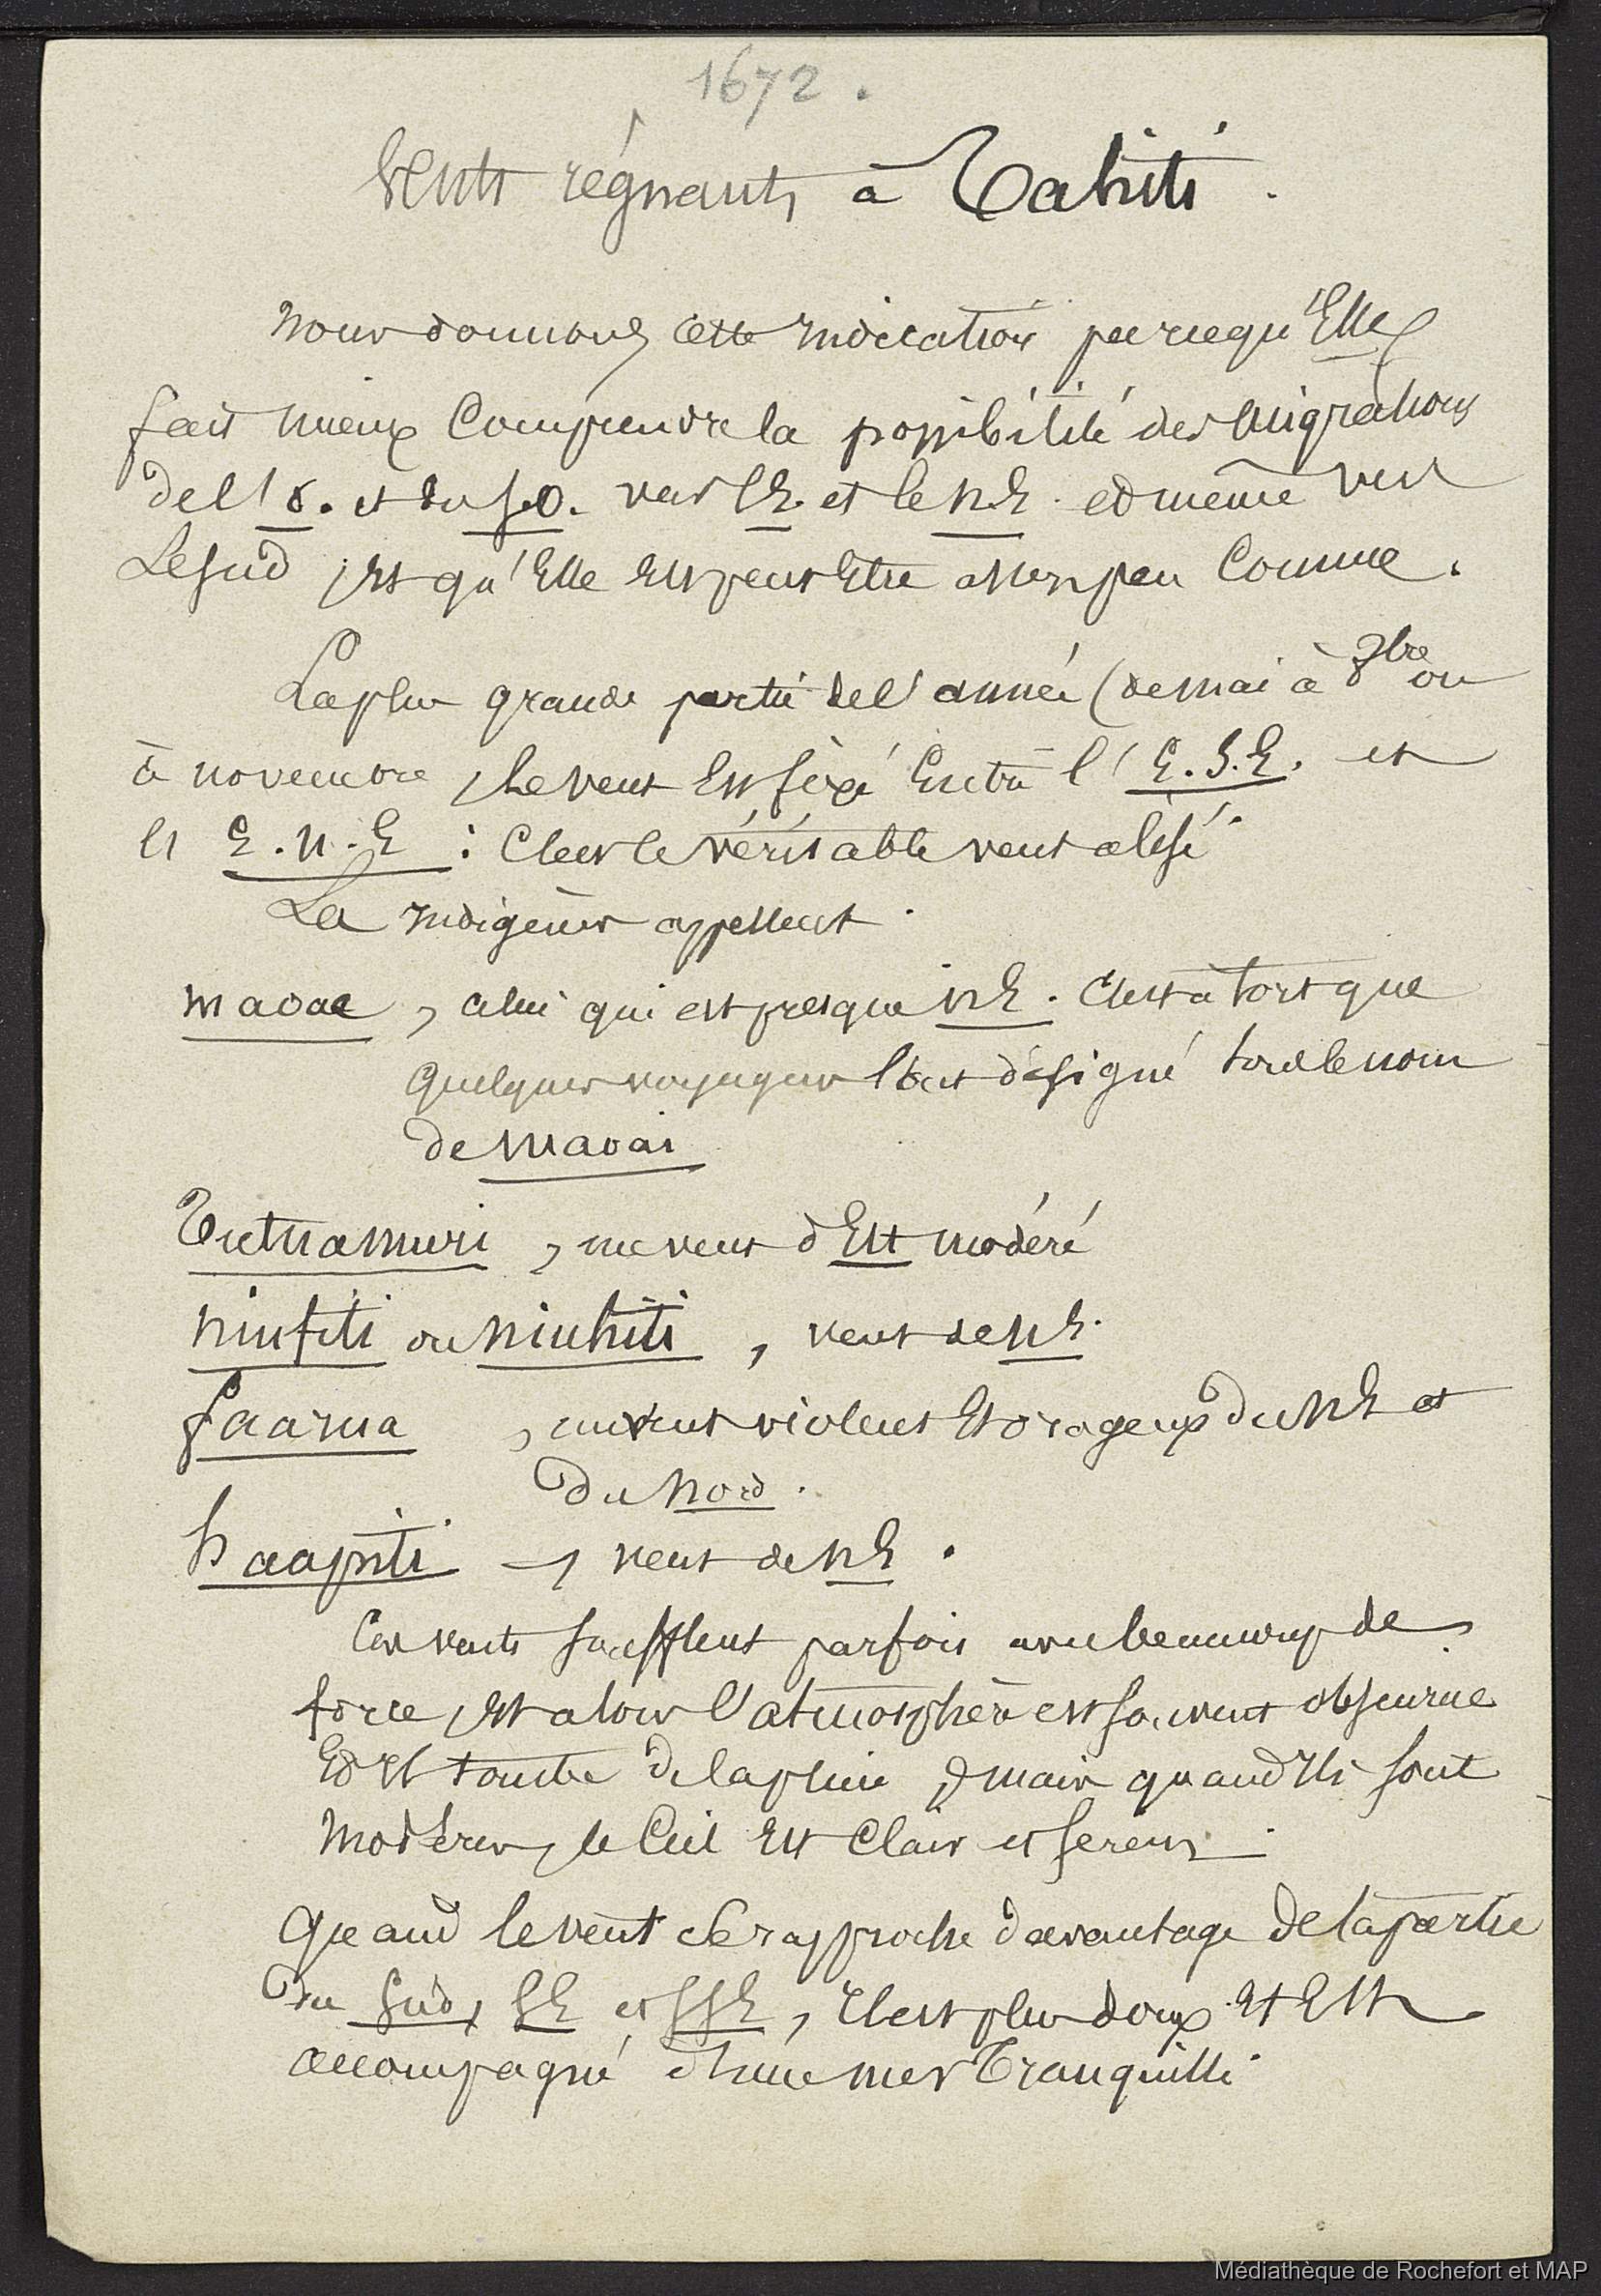 1672.
Vents régnants à Tahiti.
Nous donnons cette indication parcequ'Elle
fait mieux Comprendre la possibilité des Migrations
de l'O. et du S.O. vers l'E. et le N.E. et même vers
Le Sud, et qu'Elle Est peut Etre assez peu Connue.
La plus grande partie de l'année (de mai à 8bre ou
à novembre, Le vent Est fixé Entre l'E.S.E. et
l'E.N.E : C'est le véritable vent alisé.
Les indigènes appellent.
maoae, celui qui est presque N.E. C'est à tort que
quelques voyageurs l'ont désigné sous le nom
de maoai
, un vent d'Est modéré
niufiti ou niuhiti, vent de NE.
faarua, un vent violent Et orageux du NE et
du Nord.
haapiti, vent de NE.
Ces vents soufflent parfois avec beaucoup de
force, Et alors l'atmosphère est souvent obscurcie
Et il tombe de la pluie, mais quand ils sont
modérés, le Ciel Est Clair et serein.
Quand le vent se rapproche davantage de la partie
du Sud, SE et SSE, il est plus doux Et Est
accompagné d'une mer Tranquille
Médiathèque de Rochefort et MAP